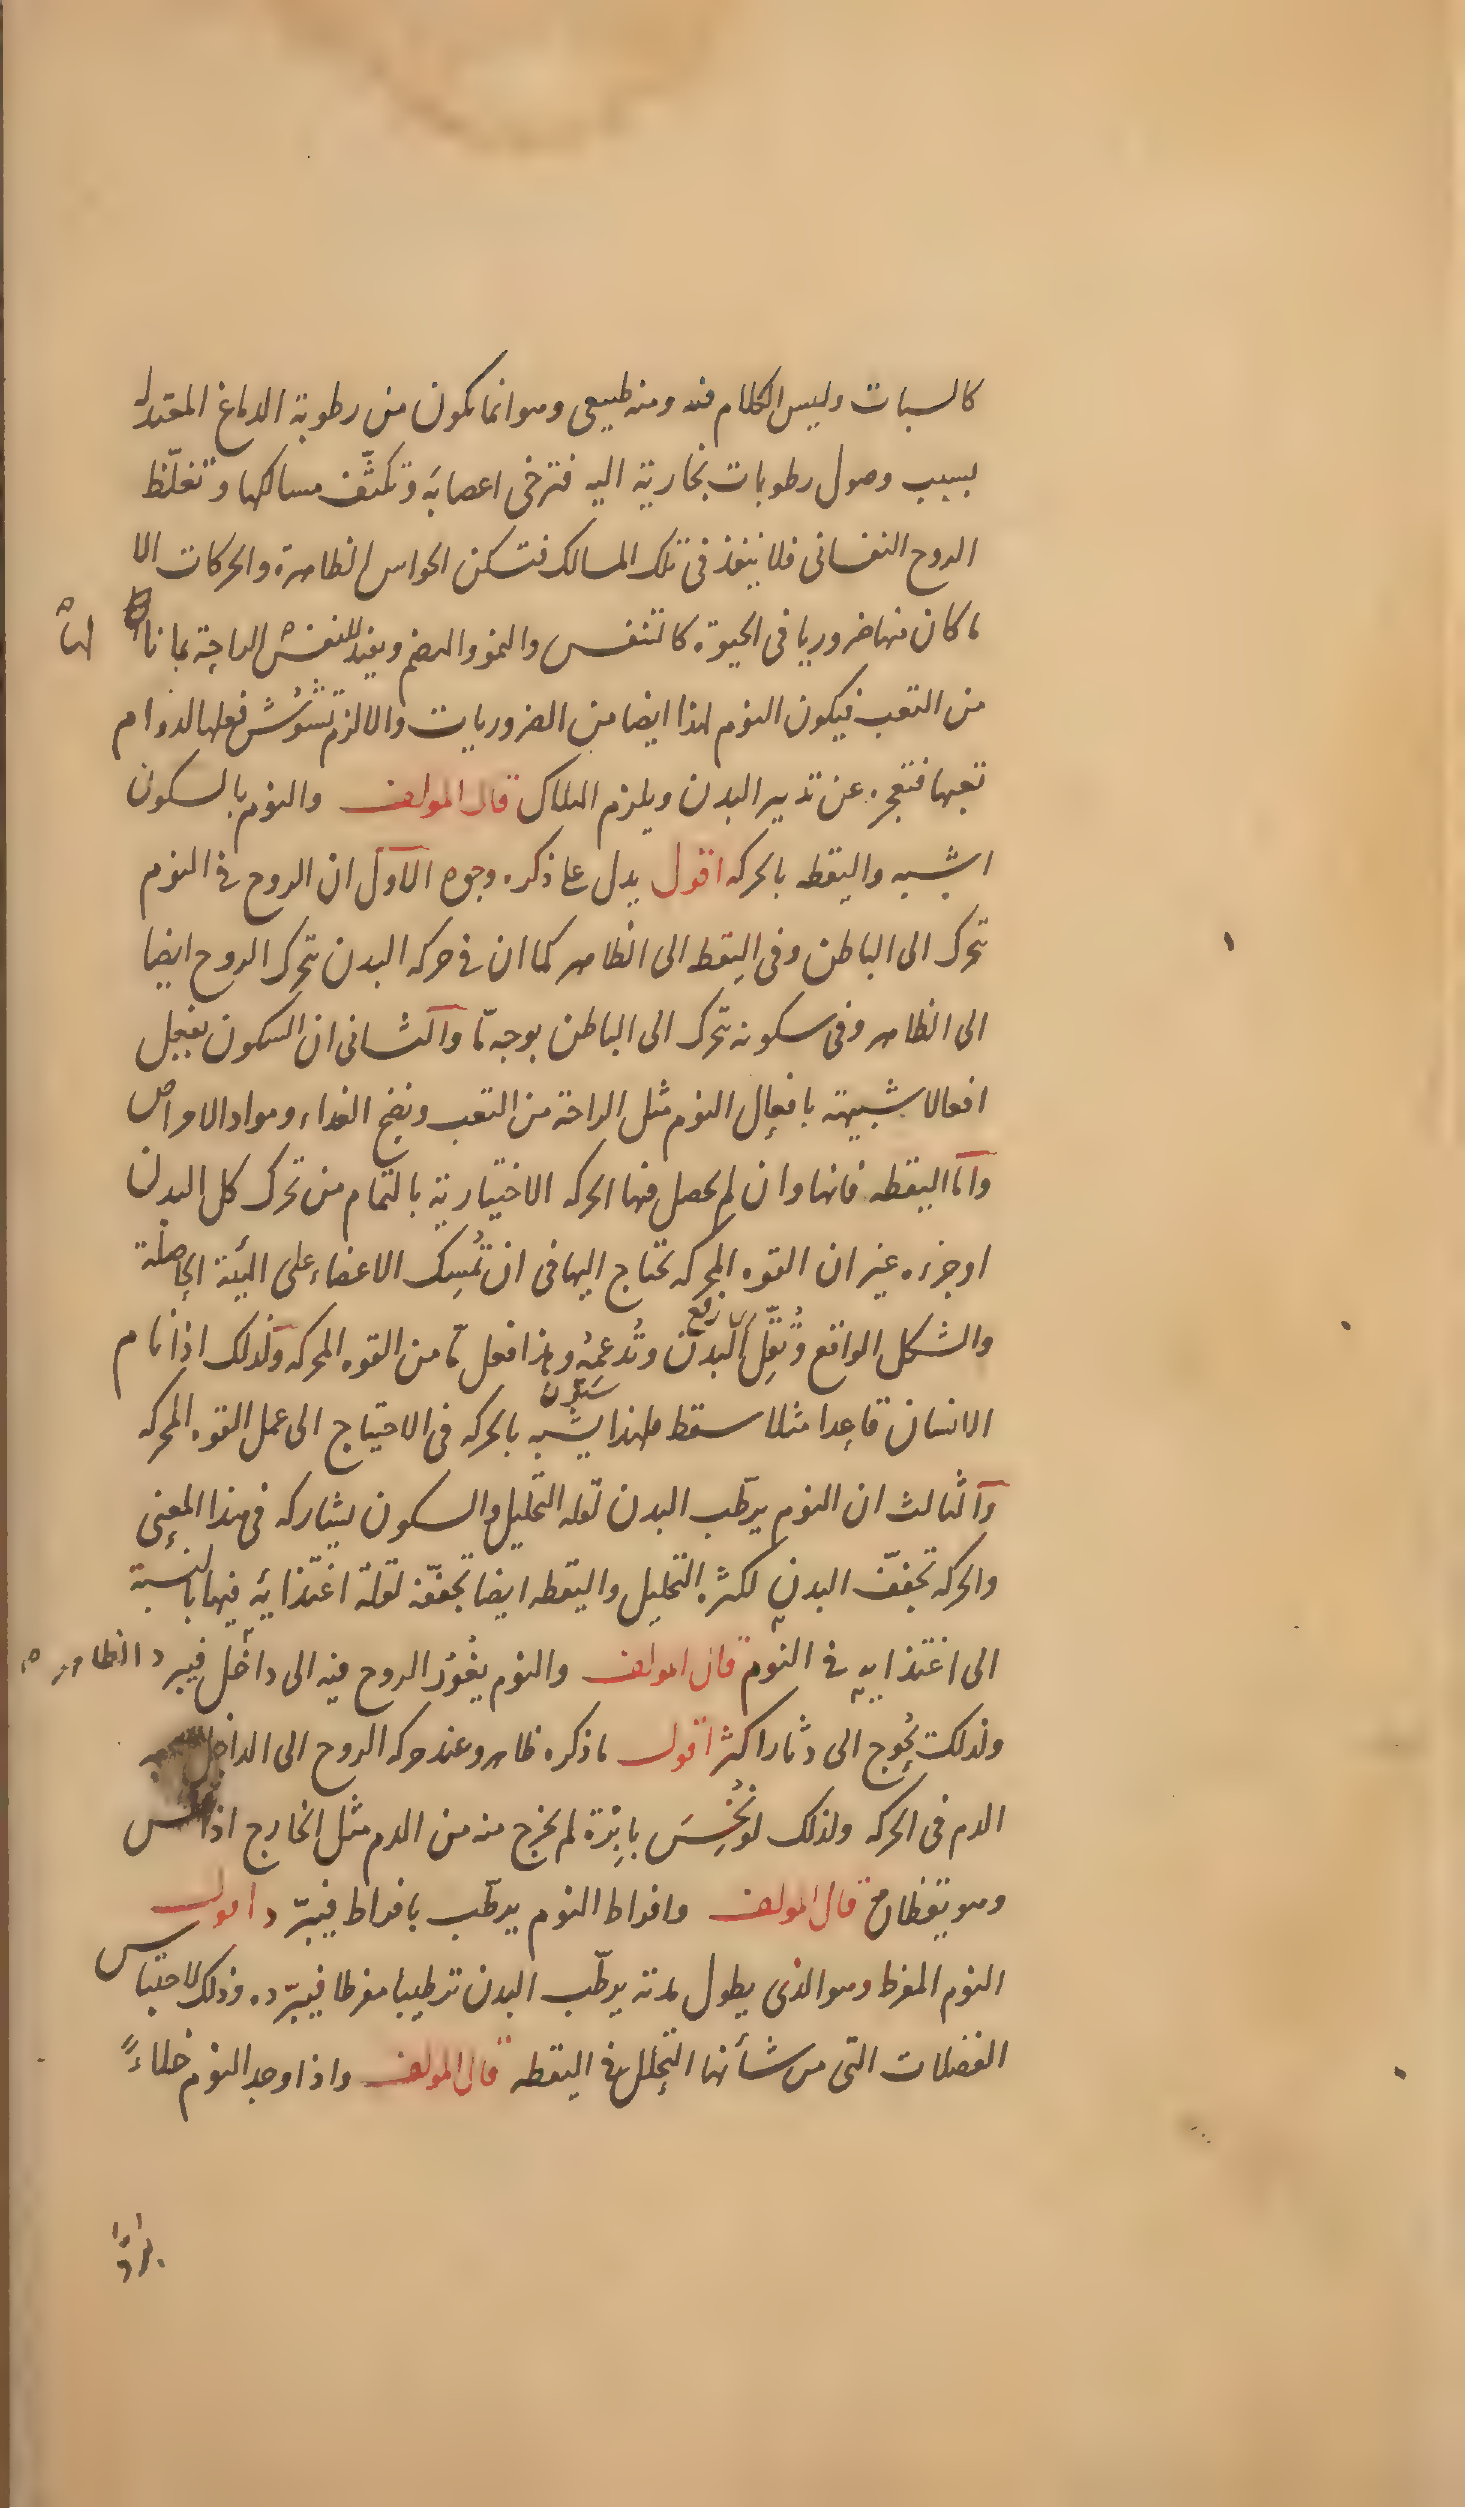 كالسبات وليس الكلام فيه ومنه طبيعى وهو انما يكون من رطوبة الدماغ المعتدله
بسبب وصول رطوبات بخارية اليه فترخى اعصابَه وتكثّف مسالكها وتغلّظ
الروح النفسانى فلا ينفذ فى تلك المسالك فتسكن الحواس الظاهرة والحركات الا
ما كان منها ضروريا فى الحيوة كالتنفس والنمو والهضم ويفيد للنفس الراحة عما نا
لها
من التعب فيكون النوم لهذا ايضا من الضروريات والا لزم تشوّش فعلها لدوام
تعبها فتعجز عن تدبير البدن ويلزم الهلاك قال المولف والنوم بالسكون
اشبه واليقظه بالحركه اقول يدل على ذكره وجوه الاول ان الروح فى النوم
تحرك الى الباطن وفى اليقظ الى الظاهر كما ان فى حركه البدن تحرك الروح ايضا
الى الظاهر وفى سكونه تحرك الى الباطن بوجه ما والثانى ان السكون يفعل
افعالا شبيهة بافعال النوم مثل الراحة من التعب ونضج الغداء ومواد الامراض
واما اليقظه فانها وان لم يحصل فيها الحركه الاختيارية بالتمام من تحرك كل البدن
او جزءه غير ان القوه المحركه تحتاج اليها فى ان تُمسِك الاعضاء على الهيئة الحاصلة
والشكل الواقع وتُقِلّ البدن وتُدعِمهُ وهذا فعل ما من القوه المحركه ولذلك اذا نام
الانسان قاعدا مثلا سقط فلهذا يشبه بالحركه فى الاحتياج الى عمل القوه المحركه
والثالث ان النوم يرطّب البدن لقله التحليل والسكون يشاركه فى هذا المعنى
والحركه تجفف البدن لكثره التحليل واليقظه ايضا تجففه لقلة اغتذائه فيها بالنسبة
الى اغتذايه فى النوم قال المولف والنوم يغُوْر الروح فيه الى داخل فيبرد الظاهر
ولذلك يُحوج الى دثار اكثر اقول ما ذكره ظاهر وعند حركه الروح الى الداخل
الدم فى الحركه ولذلك لو نُخِسَ بابرَة لم يخرج منه من الدم مثل الخارج اذا
وهو يقظان قال المولف وافراط النوم يرطّب بافراط فيبرّد اقول
النوم المفرط وهو الذى يطول مدته يرطّب البدن ترطيبا مفرطا فيبرّده وذلك لاحتباس
الفضلات التى من شأنها التحلل فى اليقظه قال المولف واذا وجد النوم خلاءً